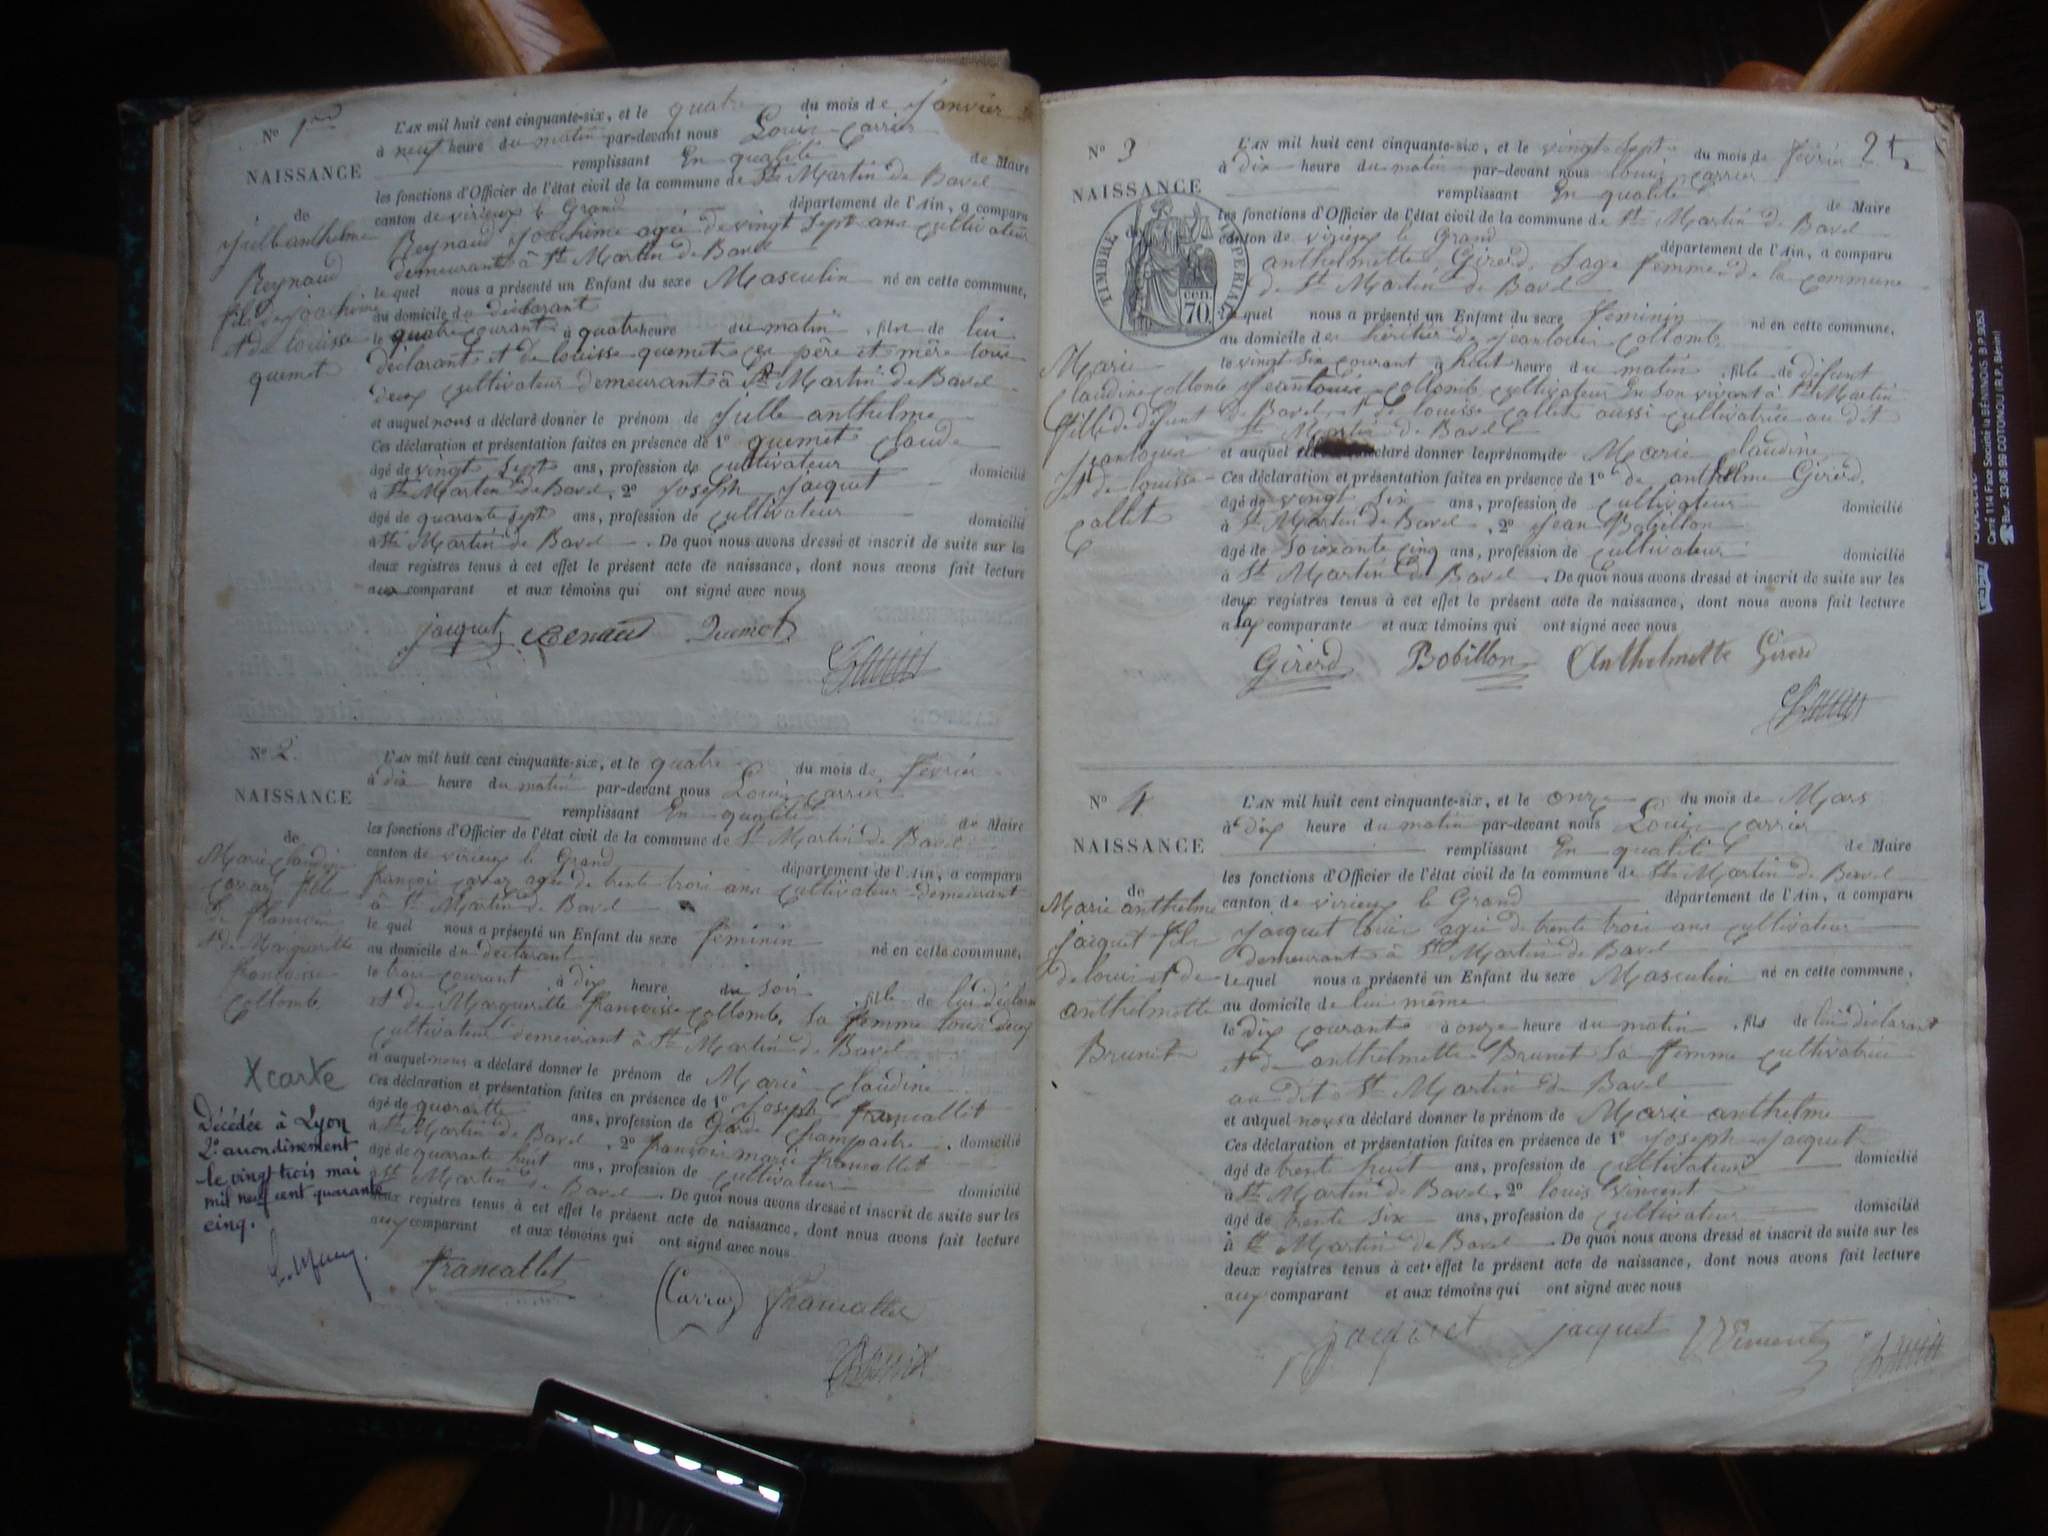 N° 1er
NAISSANCE
de
Jullanthelme
Reynaud
fils de Joachime
et de Louisse
quemet
L'AN mil huit cent cinquante-six, et le quatre du mois de Janvier
à neuf heure du matin par-devant nous Louis Carrier
remplissant En qualité de Maire
les fonctions d'Officier de l'état civil de la commune de St Martin de Bavel
canton de virieux le Grand département de l'Ain, a comparu
Reynaud Joachime agée de vingt Sept ans cultivateur
demeurant à St Martin de Bavel
le quel nous a présenté un Enfant du sexe Masculin né en cette commune,
au domicile du déclarant
le quatre courant à quatre heure du matin, fils de lui
déclarant et de louisse quemet ses père et mère tous
deux cultivateur demeurant à St Martin de Bavel
et auquel nous a déclaré donner le prénom de Julle anthelme
Ces déclaration et présentation faites en présence de 1° quemet claude
âgé de vingt Sept ans, profession de cultivateur domicilié
à St Martin de Bavel, 2° Joseph Jacquet
âgé de quarante sept ans, profession de cultivateur domicilié
à St Martin de Bavel. De quoi nous avons dressé et inscrit de suite sur les
deux registres tenus à cet effet le présent acte de naissance, dont nous avons fait lecture
aux comparant et aux témoins qui ont signé avec nous
jacquet Renaud Quemet
N° 2
NAISSANCE
de
Marie claudine
Carraz fille
de françois
et de Marguerite
françoise
Collomb
X carte
Décédée à Lyon
2e arrondissement
le vingt trois mai
mil neuf cent quarante
cinq.
L'AN mil huit cent cinquante-six, et le quatre du mois de fevrier
à dix heure du matin par-devant nous Louis Carrier
remplissant En qualité de Maire
les fonctions d'Officier de l'état civil de la commune de St Martin de Bavel
canton de virieux le Grand département de l'Ain, a comparu
françois Carraz agée de trente trois ans cultivateur demeurant
à St Martin de Bavel
le quel nous a présenté un Enfant du sexe feminin né en cette commune,
au domicile du declarant
le trois courant à dix heure du soir, fille de lui déclarant
et de Marguerite françoisse Collomb, sa femme tous deux
cultivateur demeurant à St Martin de Bavel
et auquel nous a déclaré donner le prénom de Marie claudine
Ces déclaration et présentation faites en présence de 1° Joseph francallet
âgé de quarante ans, profession de Garde Champaitre domicilié
à St Martin de Bavel, 2° françois marie francallet
âgé de quarante huit ans, profession de cultivateur domicilié
à St Martin de Bavel. De quoi nous avons dressé et inscrit de suite sur les
deux registres tenus à cet effet le présent acte de naissance, dont nous avons fait lecture
aux comparant et aux témoins qui ont signé avec nous
francallet Carraz francallet
2
N° 3
NAISSANCE
de
TIMBRE IMPERIAL
70 cen.
Marie
claudine Collomb
fille de défunt
Jeanlouis
et de louisse
callet
L'AN mil huit cent cinquante-six, et le vingt Sept du mois de fevrier
à dix heure du matin par-devant nous louis carrier
remplissant En qualité de Maire
les fonctions d'Officier de l'état civil de la commune de St Martin de Bavel
canton de virieux le Grand département de l'Ain, a comparu
anthelmette Girerd, Sage femme de la commune
de St Martin de Bavel
le quel nous a présenté un Enfant du sexe feminin né en cette commune,
au domicile des héritier de Jeanlouis collomb
le vingt Six courant à huit heure du matin, fille de défunt
Jeanlouis collomb cultivateur En Son vivant à St Martin
de Bavel, et de louisse callet aussi cultivatrice au dit
St Martin de Bavel
et auquel déclaré donner les prénom de Marie claudine
Ces déclaration et présentation faites en présence de 1° de anthelme Girerd,
âgé de vingt Six ans, profession de cultivateur domicilié
à St Martin de Bavel, 2° Jean Bobillon
âgé de Soixante cinq ans, profession de cultivateur domicilié
à St Martin de Bavel. De quoi nous avons dressé et inscrit de suite sur les
deux registres tenus à cet effet le présent acte de naissance, dont nous avons fait lecture
a la comparante et aux témoins qui ont signé avec nous
Girerd Bobillon Anthelmette Girerd
N° 4
NAISSANCE
de
Marie anthelme
jacquet fils
de louis et de
anthelmette
Brunet
L'AN mil huit cent cinquante-six, et le onze du mois de Mars
à dix heure du matin par-devant nous Louis Carrier
remplissant En qualité de Maire
les fonctions d'Officier de l'état civil de la commune de St Martin de Bavel
canton de virieux le Grand département de l'Ain, a comparu
Jacquet louis agée de trente trois ans cultivateur
demeurant à St Martin de Bavel
le quel nous a présenté un Enfant du sexe Masculin né en cette commune,
au domicile de lui même
le dix courant à onze heure du matin, fils de lui déclarant
et de anthelmette Brunet Sa femme cultivatrice
au dit St Martin de Bavel
et auquel nous a déclaré donner le prénom de Marie anthelme
Ces déclaration et présentation faites en présence de 1° Joseph Jacquet
âgé de trente huit ans, profession de cultivateur domicilié
à St Martin de Bavel, 2° louis Vincent
âgé de trente Six ans, profession de cultivateur domicilié
à St Martin de Bavel. De quoi nous avons dressé et inscrit de suite sur les
deux registres tenus à cet effet le présent acte de naissance, dont nous avons fait lecture
aux comparant et aux témoins qui ont signé avec nous
jacquet jacquet Vincent
Carré 114 Face Société la BÉNINOIS B.P. 9053
Bur. 33 06 99 COTONOU (R.P. Bénin)